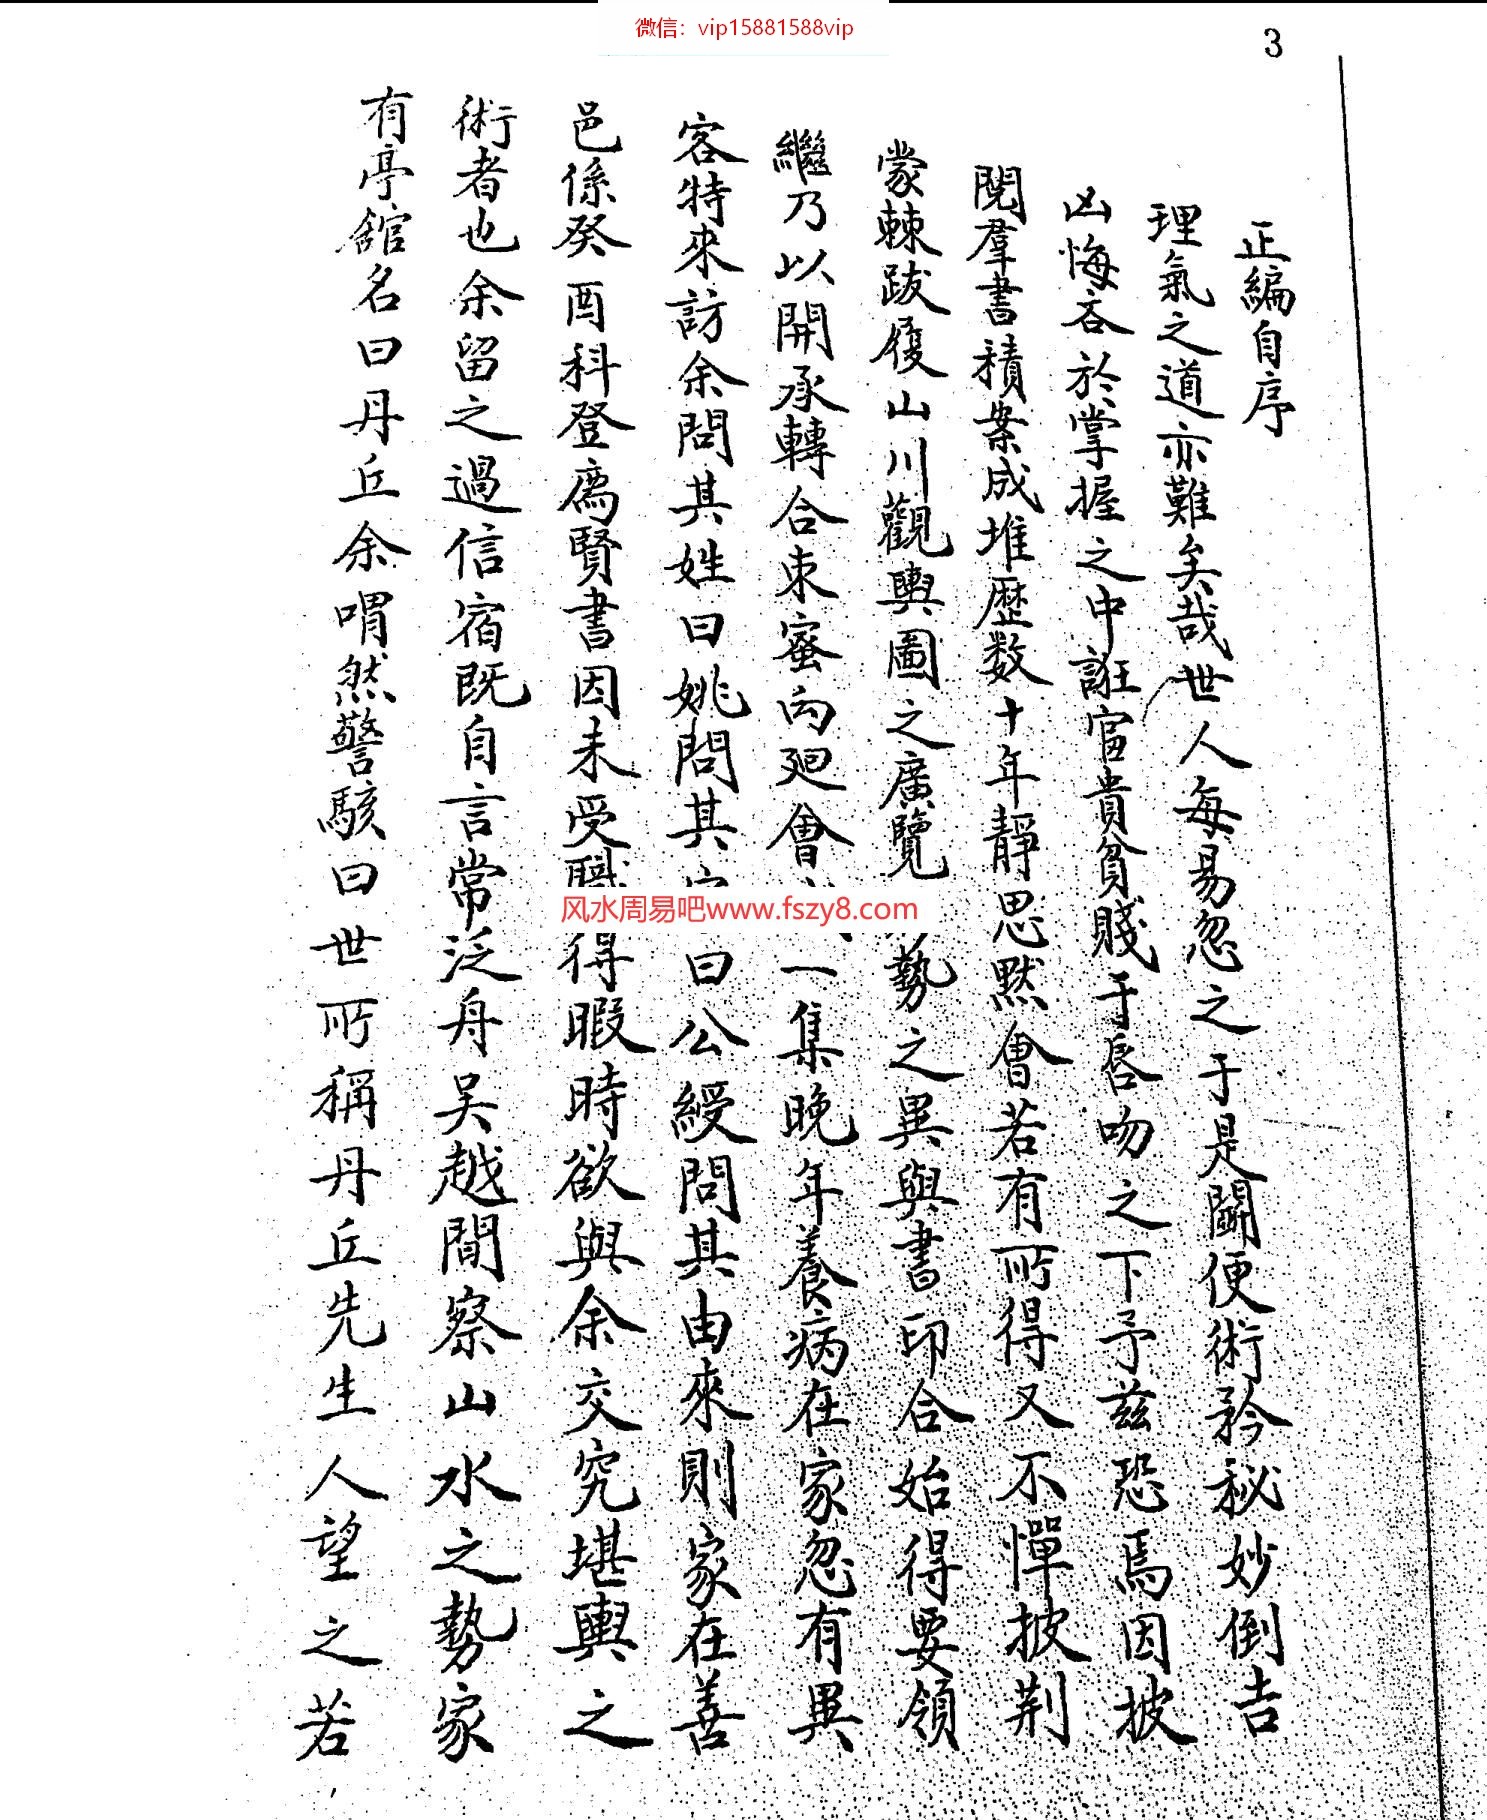 微信：vip15881588vip
3
正編自序
理氣之道亦難矣哉世人每易忽之于是闢便術矜秘妙倒吉
凶悔吝於掌握之中誑富貴貧賤于唇吻之下予兹恐焉因披
閱羣書積案成堆歷数十年靜思默會若有所得又不憚披荆
蒙棘跋履山川觀輿圖之廣覽 勢之異與書印合始得要領
繼乃以開承轉合束蜜向廻會 一集晚年養病在家忽有異
客特來訪余問其姓曰姚問其 曰公綬問其由來則家在善
邑係癸酉科登廌賢書因未受職得暇時欲與余交究堪輿之
術者也余留之過信宿既自言常泛舟吴越間察山水之勢家
有亭舘名曰丹丘余喟然警駭曰世所稱丹丘先生人望之若
风水周易吧www.fszy8.com